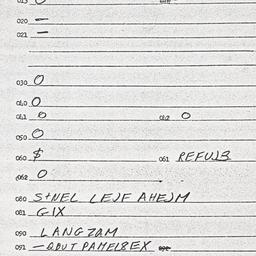 020 —
021 —
030 O
040 O
041 O 042 O
050 O
060 $ 061 REFUL3
062 O
080 S+NEL LEJF AHEJM
081 GIX
090 LANGZAM
091 —QBUT PAMEL8EX